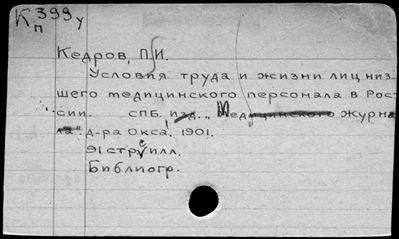 К 399 у
п
Кедров, П.И.
Условия труда и жизни лиц низ-
шего медицинского персонала в Рос-
сии. СПБ. изд. "Медицинского журна-
ла" д-ра Окса, 1901.
91 стр. с илл.
Библиогр.